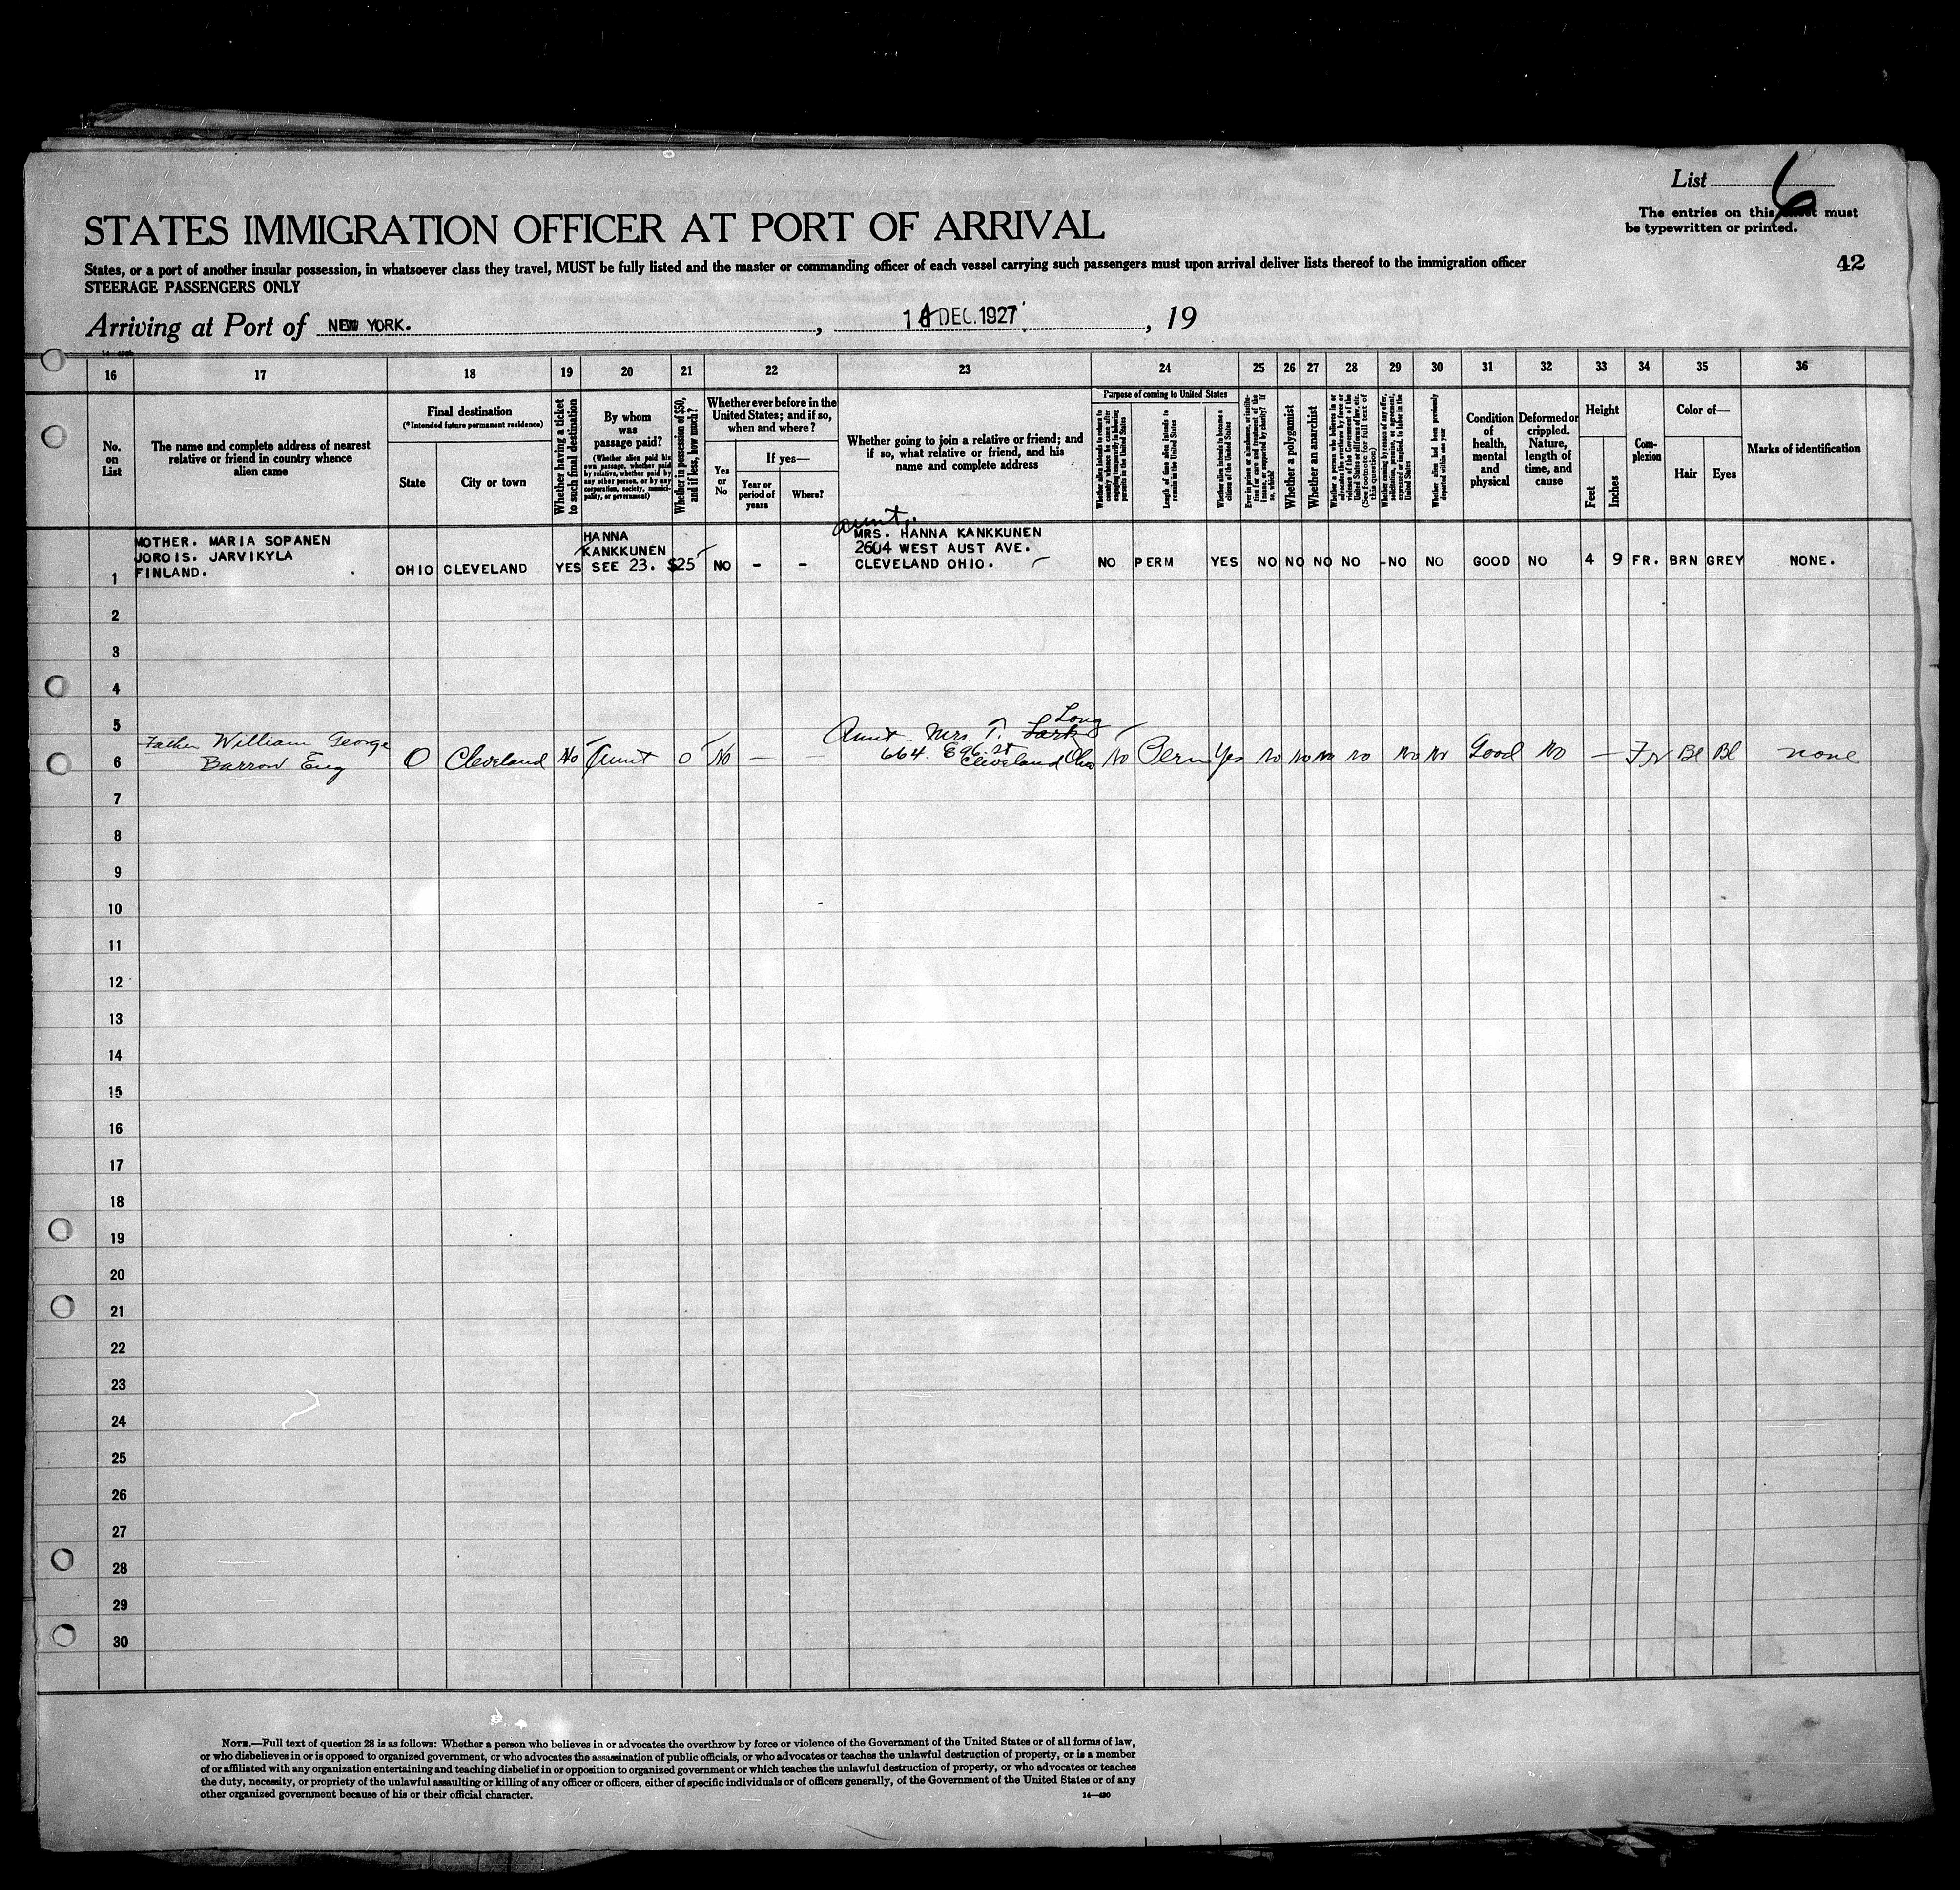 List 6
The entries on this sheet must
be typewritten or printed.
STATES IMMIGRATION OFFICER AT PORT OF ARRIVAL
42
States, or a port of another insular possession, in whatsoever class they travel, MUST be fully listed and the master or commanding officer of each vessel carrying such passengers must upon arrival deliver lists thereof to the immigration officer
STEERAGE PASSENGERS ONLY
Arriving at Port of NEW YORK. , DEC. 1927 , 19
16 17 18 19 20 21 22 23 24 25 26 27 28 29 30 31 32 33 34 35 36
No.
on
List
The name and complete address of nearest
relative or friend in country whence
alien came
Final destination
(*Intended future permanent residence)
State
City or town
Whether having a ticket
to such final destination
By whom
was
passage paid?
(Whether alien paid his
own passage, whether paid
by relative, whether paid by
any other person, or by any
corporation, society, munici-
pality, or government)
Whether in possession of $50,
and if less, how much?
Whether ever before in the
United States; and if so,
when and where?
Yes
or
No
If yes—
Year or
period of
years
Where?
Whether going to join a relative or friend; and
if so, what relative or friend, and his
name and complete address
Purpose of coming to United States
Whether alien intends to return to
country whence he came after
engaging temporarily in laboring
pursuits in the United States
Length of time alien intends to
remain in the United States
Whether alien intends to become a
citizen of the United States
Ever in prison or almshouse, or institu-
tion for care and treatment of the
insane, or supported by charity? If
so, which?
Whether a polygamist
Whether an anarchist
Whether a person who believes in or
advocates the overthrow by force or
violence of the Government of the
United States or all forms of law, etc.
(See footnote for full text of
this question)
Whether coming by reason of any offer,
solicitation, promise, or agreement,
expressed or implied, to labor in the
United States
Whether alien had been previously
deported within one year
Condition
of
health,
mental
and
physical
Deformed or
crippled.
Nature,
length of
time, and
cause
Height
Feet
Inches
Com-
plexion
Color of—
Hair
Eyes
Marks of identification
1
MOTHER. MARIA SOPANEN
JOROIS. JARVIKYLA
FINLAND.
OHIO CLEVELAND YES
HANNA
KANKKUNEN
SEE 23. $25 NO - -
aunt.
MRS. HANNA KANKKUNEN
2604 WEST AUST AVE.
CLEVELAND OHIO.
NO PERM YES NO NO NO NO -NO NO GOOD NO 4 9 FR. BRN GREY NONE.
2
3
4
5
6
Father William George
Barrow Eng
O Cleveland No Aunt 0 No —
Long
Aunt Mrs. T.
664. E 96. st
Cleveland Ohio
No Perm Yes No No No No No No Good No — Fr Bl Bl none
7
8
9
10
11
12
13
14
15
16
17
18
19
20
21
22
23
24
25
26
27
28
29
30
NOTE.—Full text of question 28 is as follows: Whether a person who believes in or advocates the overthrow by force or violence of the Government of the United States or of all forms of law,
or who disbelieves in or is opposed to organized government, or who advocates the assassination of public officials, or who advocates or teaches the unlawful destruction of property, or is a member
of or affiliated with any organization entertaining and teaching disbelief in or opposition to organized government or which teaches the unlawful destruction of property, or who advocates or teaches
the duty, necessity, or propriety of the unlawful assaulting or killing of any officer or officers, either of specific individuals or of officers generally, of the Government of the United States or of any
other organized government because of his or their official character.
14—430